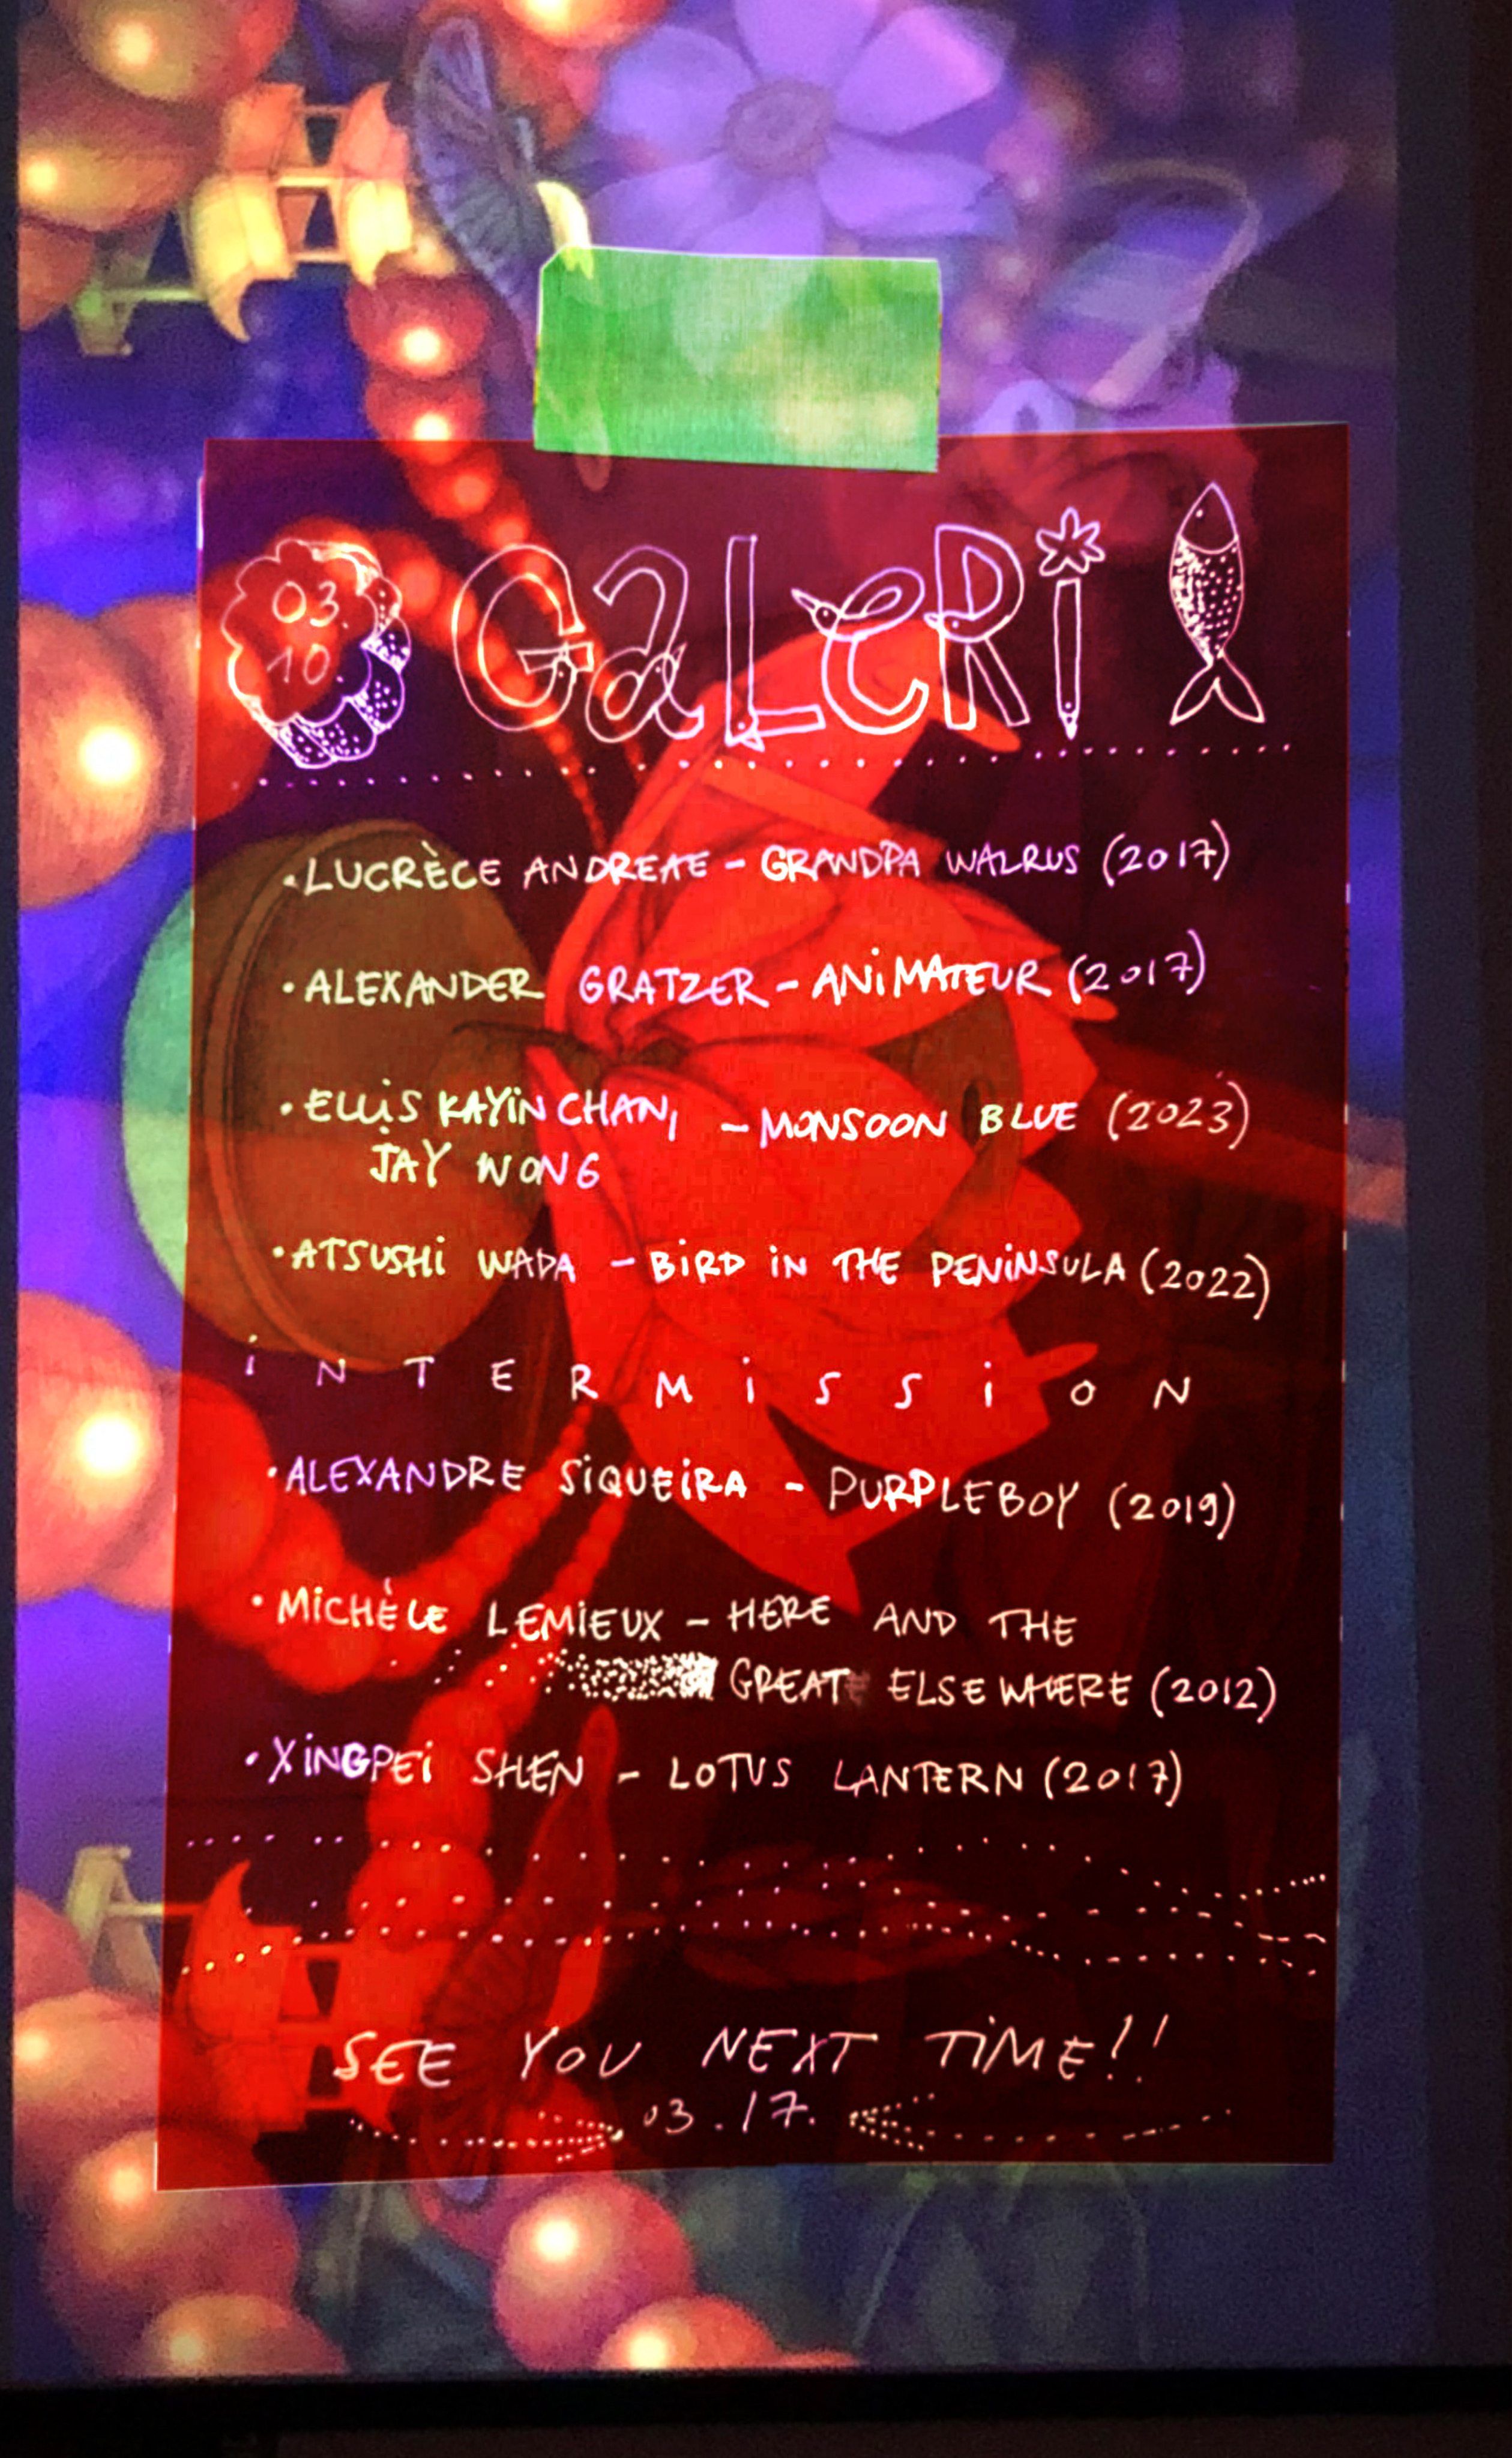 03.
10
GaLeRi
• LUCRÈCE ANDREAE – GRANDPA WALRUS (2017)
• ALEXANDER GRATZER – ANiMATEUR (2017)
• ELLiS KAYiN CHAN, – MONSOON BLUE (2023)
JAY WONG
• ATSUSHi WADA – BiRD iN THE PENiNSULA (2022)
iNTERMiSSiON
• ALEXANDRE SiQUEiRA – PURPLEBOY (2019)
• MiCHÈLE LEMiEUX – HERE AND THE
GREAT ELSEWHERE (2012)
• XiNGPEi SHEN – LOTUS LANTERN (2017)
SEE YOU NEXT TiME!!
03.17.